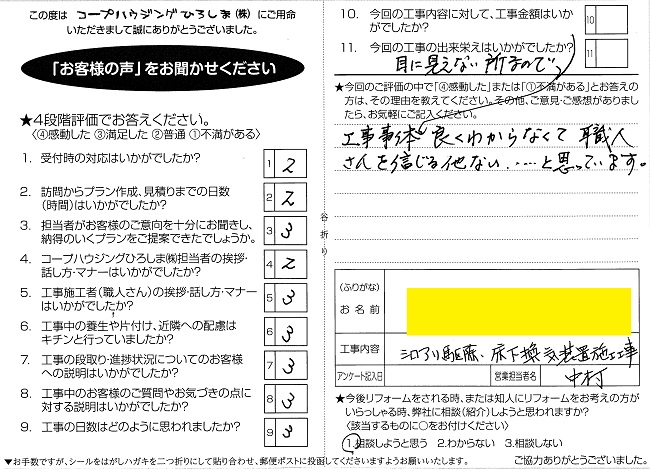 この度は コープハウジングひろしま(株) にご用命
いただきまして誠にありがとうございました。
「お客様の声」をお聞かせください
★4段階評価でお答えください。
〈④感動した ③満足した ②普通 ①不満がある〉
1. 受付時の対応はいかがでしたか? 1 2
2. 訪問からプラン作成、見積りまでの日数
(時間)はいかがでしたか? 2 2
3. 担当者がお客様のご意向を十分にお聞きし、
納得のいくプランをご提案できたでしょうか。 3 3
4. コープハウジングひろしま㈱担当者の挨拶・
話し方・マナーはいかがでしたか? 4 2
5. 工事施工者(職人さん)の挨拶・話し方・マナー
はいかがでしたか? 5 3
6. 工事中の養生や片付け、近隣への配慮は
キチンと行っていましたか? 6 3
7. 工事の段取り・進捗状況についてのお客様
への説明はいかがでしたか? 7 3
8. 工事中のお客様のご質問やお気づきの点に
対する説明はいかがでしたか? 8 3
9. 工事の日数はどのように思われましたか? 9 3
▼お手数ですが、シールをはがしハガキを二つ折りにして貼り合わせ、郵便ポストに投函してくださいますようお願いいたします。
谷折り
10. 今回の工事内容に対して、工事金額はいか
がでしたか? 10
11. 今回の工事の出来栄えはいかがでしたか? 11
目に見えない所なので
★今回のご評価の中で「④感動した」または「①不満がある」とお答え
の方は、その理由を教えてください。その他、ご意見・ご感想がありまし
たら、お気軽にご記入ください。
工事事体 良くわからなくて 職人
さんを信じる他ない、....と思っています。
(ふりがな)
お名前
工事内容 シロアリ駆除、床下換気装置施工工事
アンケート記入日 営業担当者名 中村
★今後リフォームをされる時、または知人にリフォームをお考えの方が
いらっしゃる時、弊社に相談(紹介)しようと思われますか?
〈該当するものに○をお付けください〉
1.相談しようと思う 2.わからない 3.相談しない
ご協力ありがとうございました。